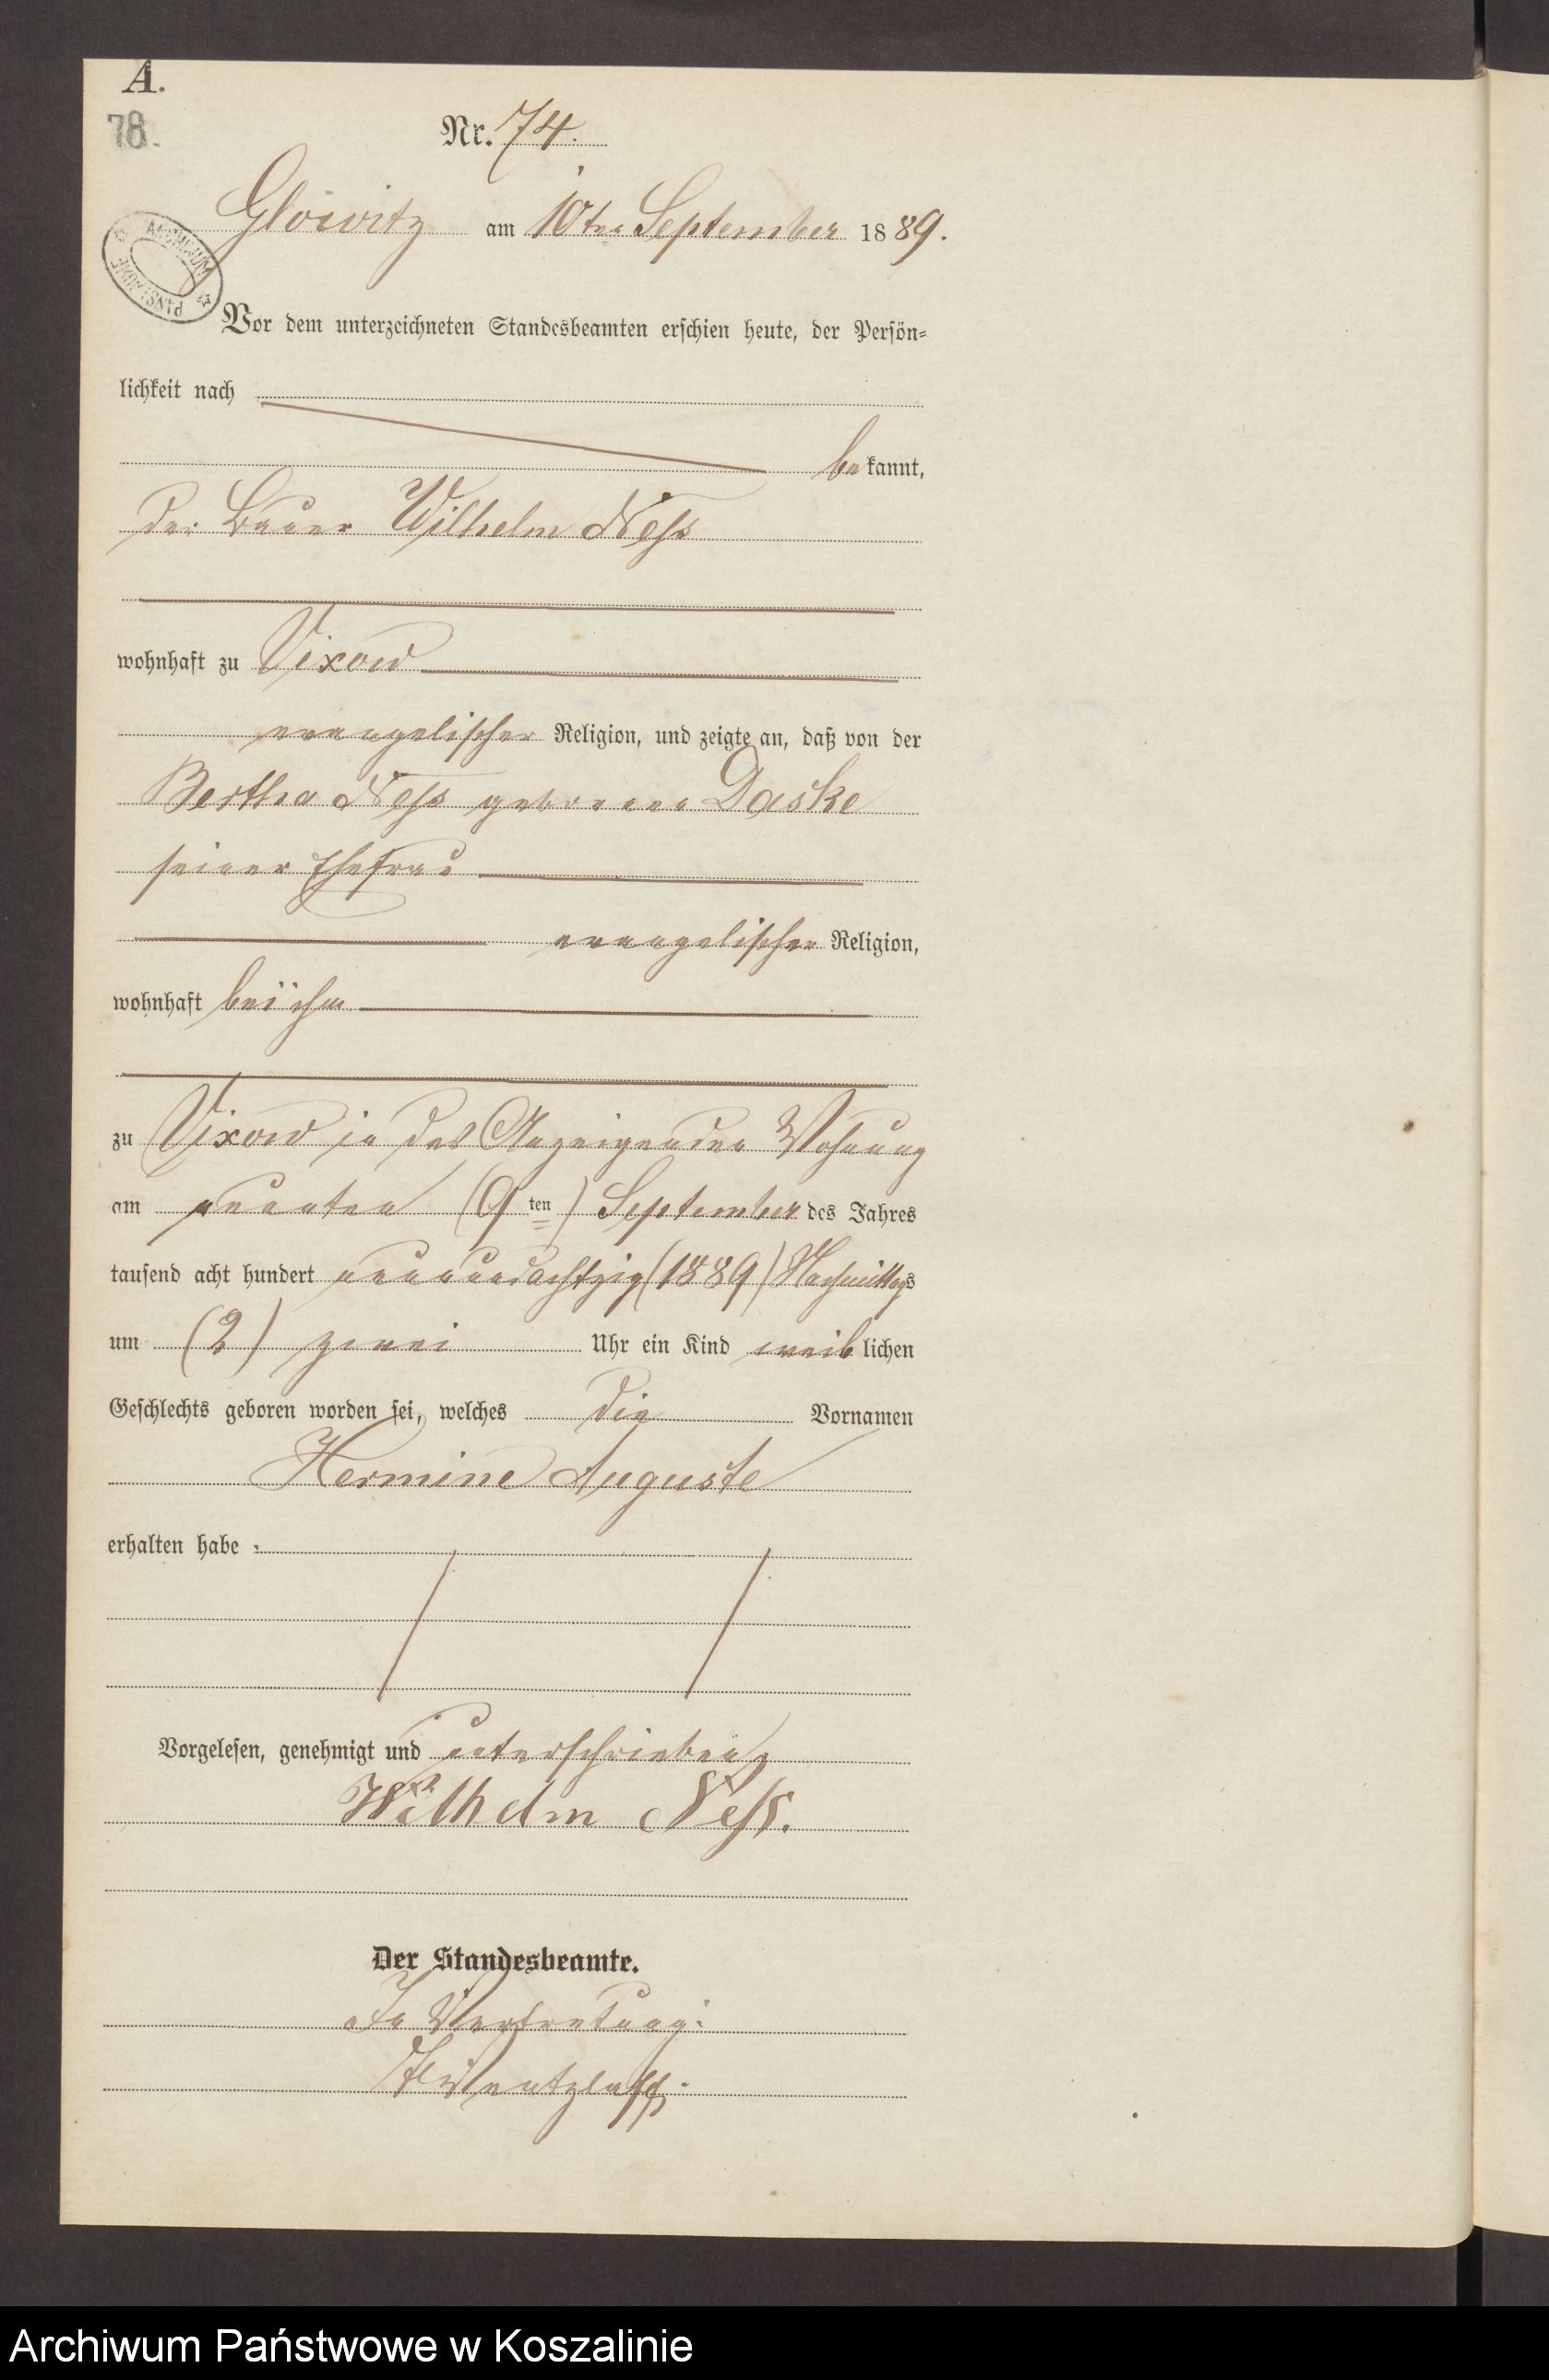 A.
78.
Nr. 74.
Glowitz am 10ten September 1889.
ARCHIWUM PAŃSTWOWE
Vor dem unterzeichneten Standesbeamten erschien heute, der Persön=
lichkeit nach
bekannt,
der Bauer Wilhelm Neß
wohnhaft zu Vixow
evangelischer Religion, und zeigte an, daß von der
Bertha Neß geborene Daske
seiner Ehefrau
evangelischer Religion,
wohnhaft bei ihm
zu Vixow in des Anzeigenden Wohnung
am neunten (9ten) September des Jahres
tausend acht hundert neunundachtzig (1889) Nachmittags
um (2) zwei Uhr ein Kind weiblichen
Geschlechts geboren worden sei, welches die Vornamen
Hermine Auguste
erhalten habe.
Vorgelesen, genehmigt und unterschrieben
Wilhelm Neß.
Der Standesbeamte.
In Vertretung:
Wentzlaff.
Archiwum Państwowe w Koszalinie